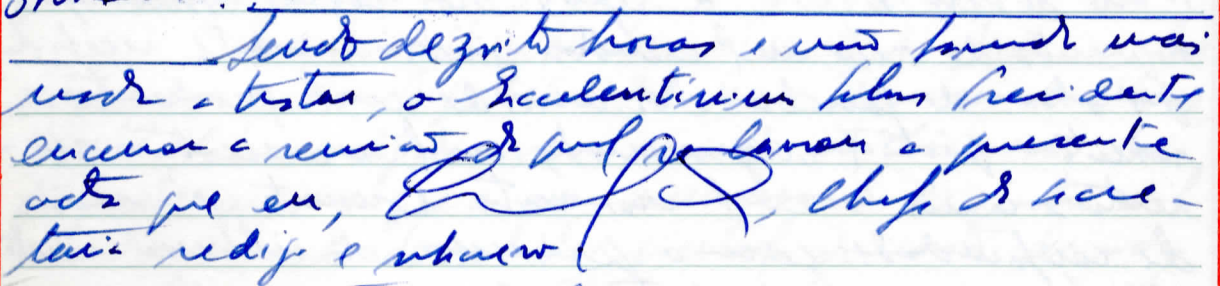 Sendo dezoito horas e não havendo mais
nada a tratar, o Excelentíssimo Senhor Presidente
encerrou a reunião de que se lavrou a presente
acta que eu, , Chefe de Secre-
taria redigi e subscrevo.